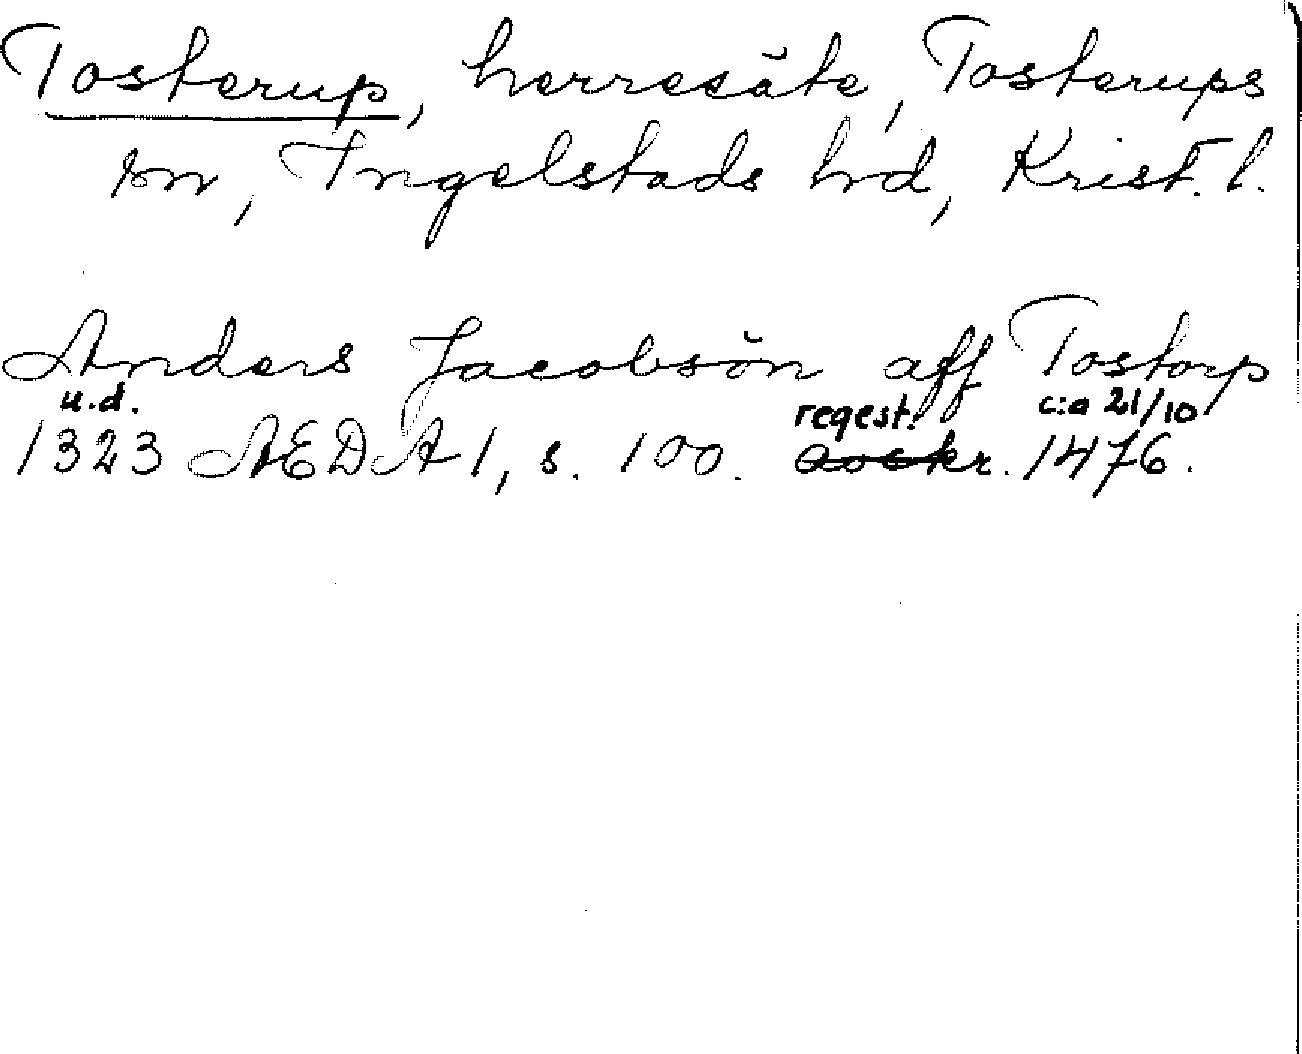 Tosterup, herresäte, Tosterups
sn, Ingelstads hd, Krist. l.
Anders Jacobsön aff Tostorp
u.d. regest. c:a 21/10
1323 ÆDA 1, s. 100. kr. 1476.